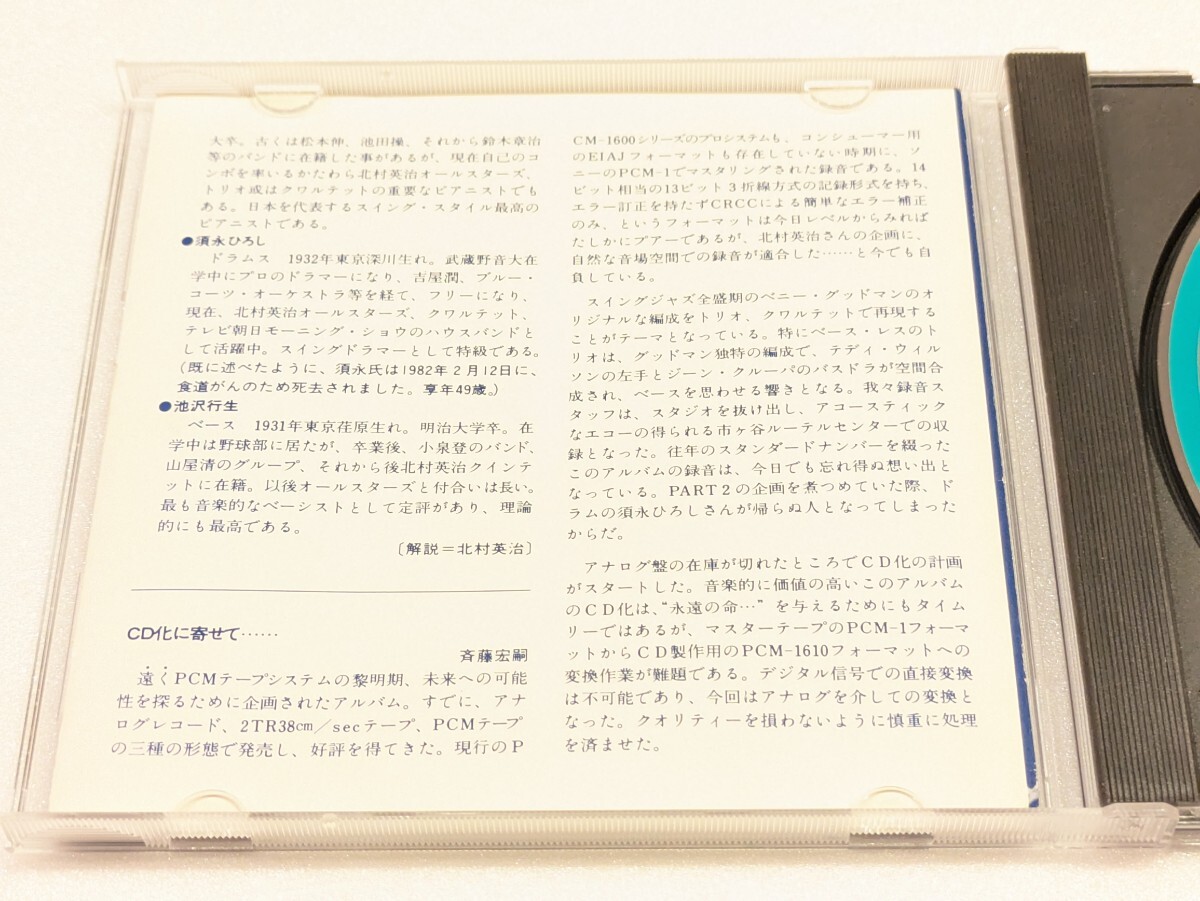 大卒。古くは松本伸、池田操、それから鈴木章治
等のバンドに在籍した事があるが、現在自己のコ
ンボを率いるかたわら北村英治オールスターズ、
トリオ或はクワルテットの重要なピアニストでも
ある。日本を代表するスイング・スタイル最高の
ピアニストである。
●須永ひろし
ドラムス　1932年東京深川生れ。武蔵野音大在
学中にプロのドラマーになり、吉屋潤、ブルー・
コーツ・オーケストラ等を経て、フリーになり、
現在、北村英治オールスターズ、クワルテット、
テレビ朝日モーニング・ショウのハウスバンドと
して活躍中。スイングドラマーとして特級である。
(既に述べたように、須永氏は1982年2月12日に、
食道がんのため死去されました。享年49歳。)
●池沢行生
ベース　1931年東京荏原生れ。明治大学卒。在
学中は野球部に居たが、卒業後、小泉登のバンド、
山屋清のグループ、それから後北村英治クインテ
ットに在籍。以後オールスターズと付合いは長い。
最も音楽的なベーシストとして定評があり、理論
的にも最高である。
〔解説＝北村英治〕
CD化に寄せて……
斉藤宏嗣
遠くPCMテープシステムの黎明期、未来への可能
性を探るために企画されたアルバム。すでに、アナ
ログレコード、2TR38cm／secテープ、PCMテープ
の三種の形態で発売し、好評を得てきた。現行のP
CM-1600シリーズのプロシステムも、コンシューマー用
のEIAJフォーマットも存在していない時期に、ソ
ニーのPCM-1でマスタリングされた録音である。14
ビット相当の13ビット3折線方式の記録形式を持ち、
エラー訂正を持たずCRCCによる簡単なエラー補正
のみ、というフォーマットは今日レベルからみれば
たしかにプアーであるが、北村英治さんの企画に、
自然な音場空間での録音が適合した……と今でも自
負している。
スイングジャズ全盛期のベニー・グッドマンのオ
リジナルな編成をトリオ、クワルテットで再現する
ことがテーマとなっている。特にベース・レスのト
リオは、グッドマン独特の編成で、テディ・ウィル
ソンの左手とジーン・クルーパのバスドラが空間合
成され、ベースを思わせる響きとなる。我々録音ス
タッフは、スタジオを抜け出し、アコースティック
なエコーの得られる市ヶ谷ルーテルセンターでの収
録となった。往年のスタンダードナンバーを綴った
このアルバムの録音は、今日でも忘れ得ぬ想い出と
なっている。PART2の企画を煮つめていた際、ド
ラムの須永ひろしさんが帰らぬ人となってしまった
からだ。
アナログ盤の在庫が切れたところでCD化の計画
がスタートした。音楽的に価値の高いこのアルバム
のCD化は、“永遠の命…”を与えるためにもタイム
リーではあるが、マスターテープのPCM-1フォーマ
ットからCD製作用のPCM-1610フォーマットへの
変換作業が難題である。デジタル信号での直接変換
は不可能であり、今回はアナログを介しての変換と
なった。クオリティーを損わないように慎重に処理
を済ませた。